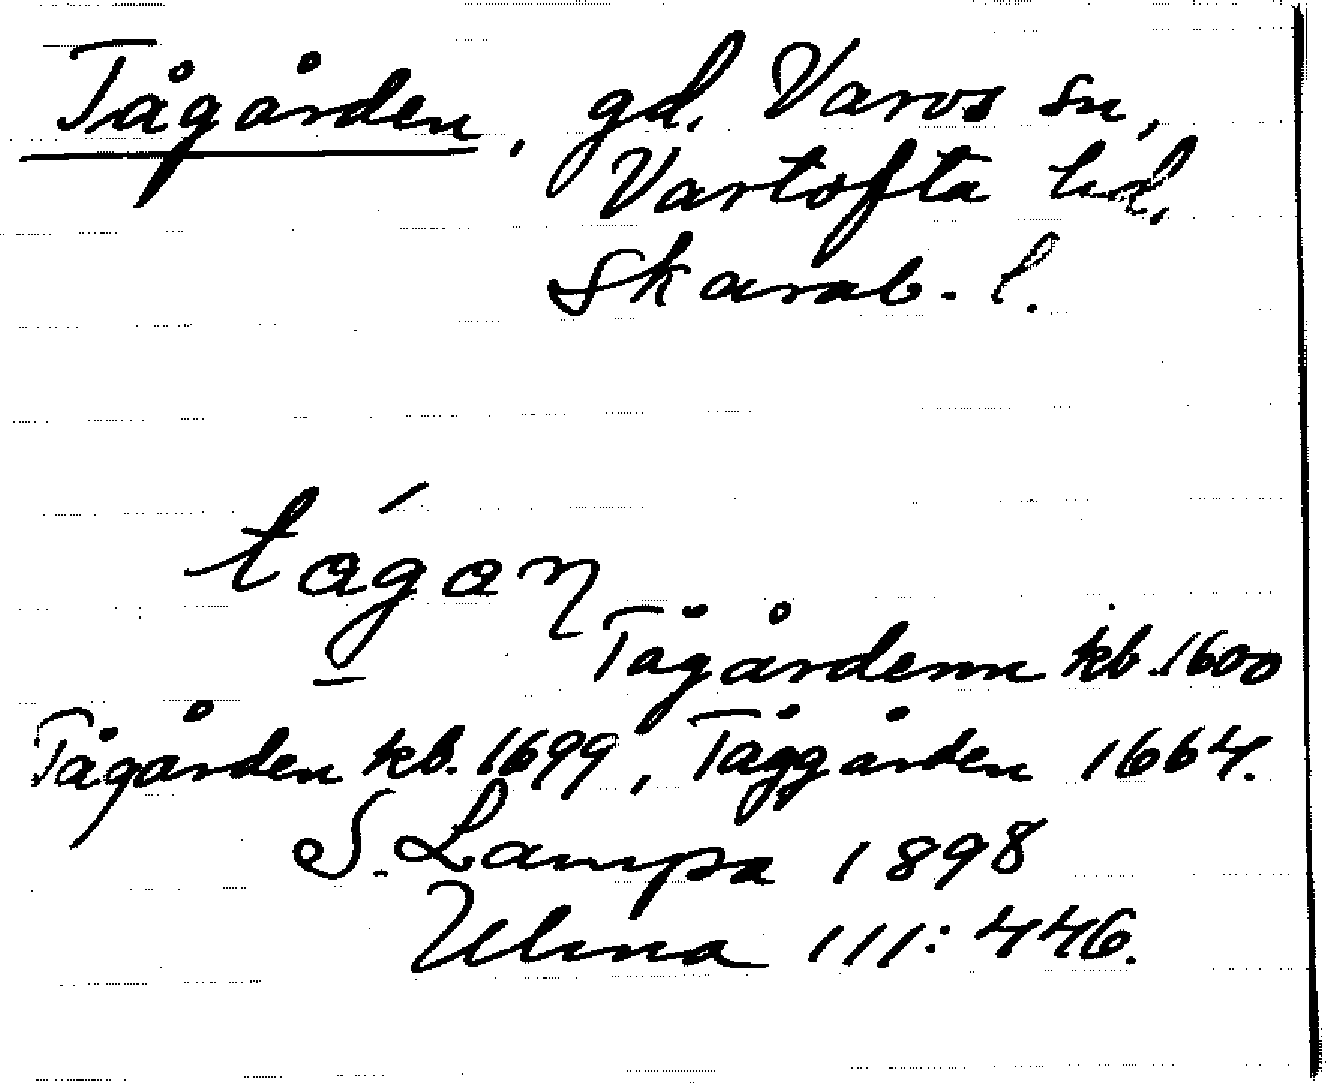 Tågården, gd. Varvs sn,
Vartofta hd.
Skarab. l.
tågan
Tågårdenn kb. 1600
Tågården kb. 1699, Tåggården 1664.
S. Lampa 1898
Ulma 111:446.